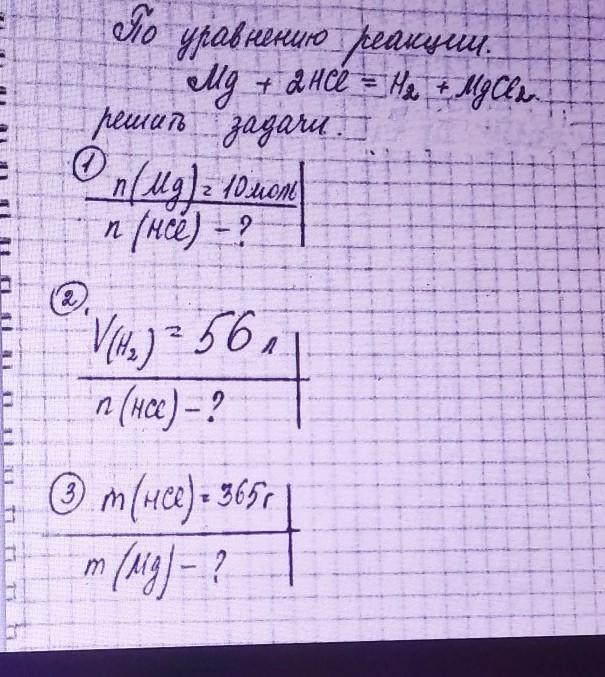 По уравнению реакции.
Mg + 2HCl = H₂ + MgCl₂.
решить задачи.
① n(Mg) = 10 моль
n(HCl) - ?
②.
V(H₂) = 56 л
n(HCl) - ?
③ m(HCl) = 365г
m(Mg) - ?